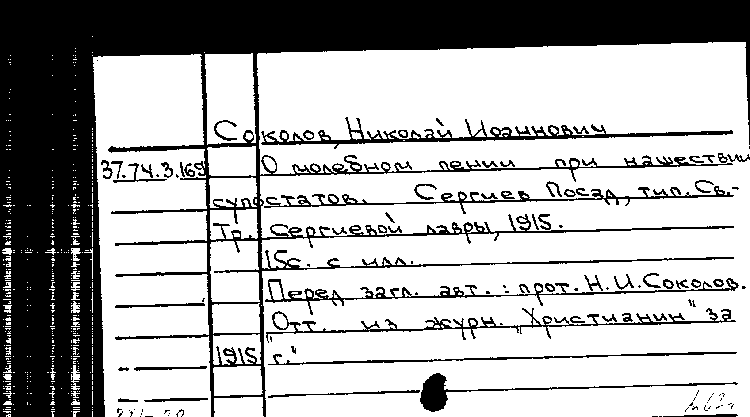 Соколов, Николай Иоаннович
37.74.3.169 О молебном пении при нашествии
супостатов. Сергиев Посад, тип. Св.-
Тр. Сергиевой лавры, 1915.
15с. с илл.
Перед загл. авт.: прот. Н.И.Соколов.
Отт. из журн. "Христианин" за
1915 г."